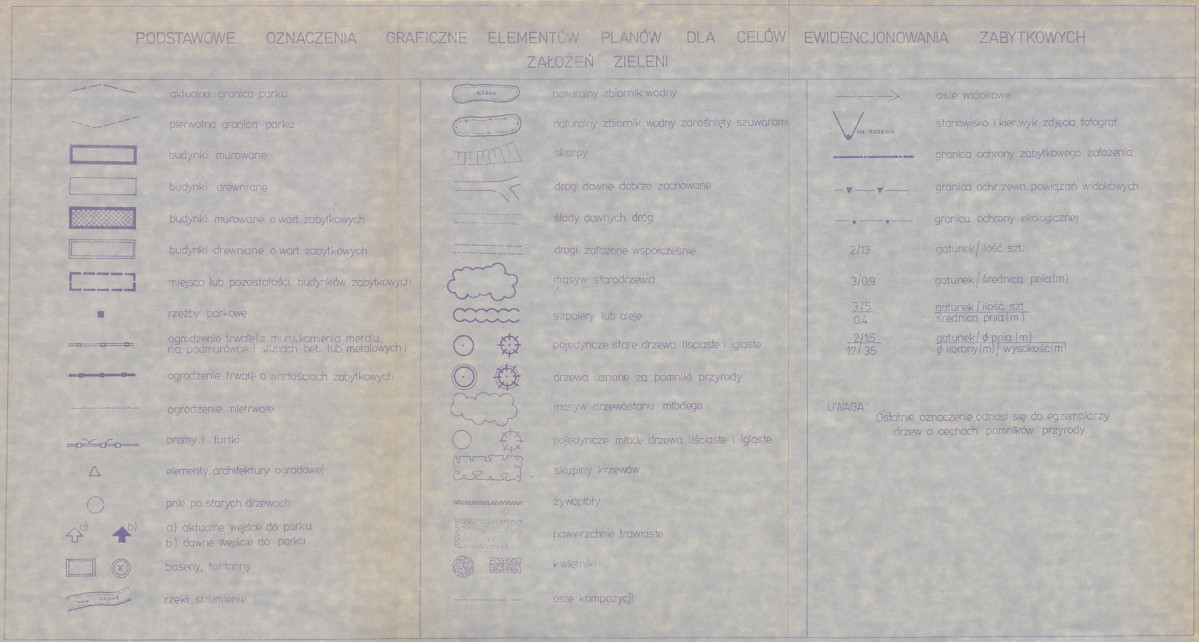 PODSTAWOWE OZNACZENIA GRAFICZNE ELEMENTÓW PLANÓW DLA CELÓW EWIDENCJONOWANIA ZABYTKOWYCH
ZAŁOŻEŃ ZIELENI
aktualna granica parku
pierwotna granica parku
budynki murowane
budynki drewniane
budynki murowane o wart. zabytkowych
budynki drewniane o wart. zabytkowych
miejsca lub pozostałości budynków zabytkowych
rzeźby parkowe
ogrodzenie trwałe (z muru, kamienia, metalu,
na podmurówce i słupach bet. lub metalowych)
ogrodzenie trwałe o wartościach zabytkowych
ogrodzenie nietrwałe
bramy i furtki
elementy architektury ogrodowej
pnie po starych drzewach
a) b) a) aktualne wejście do parku
b) dawne wejście do parku
baseny, fontanny
rzeki, strumienie
naturalny zbiornik wodny
naturalny zbiornik wodny zarośnięty szuwarami
skarpy
drogi dawne dobrze zachowane
ślady dawnych dróg
drogi założone współcześnie
masyw starodrzewia
szpalery lub aleje
pojedyncze stare drzewa liściaste i iglaste
drzewa uznane za pomniki przyrody
masyw drzewostanu młodego
pojedyncze młode drzewa liściaste i iglaste
skupiny krzewów
żywopłoty
nawierzchnie trawiaste
kwietniki
osie kompozycji
osie widokowe
stanowisko i kier. wyk. zdjęcia fotograf.
granica ochrony zabytkowego założenia
granica ochr. zewn. powiązań widokowych
granica ochrony ekologicznej
2/13 gatunek/ilość szt.
3/0,9 gatunek/średnica pnia(m)
3/5 gatunek/ilość szt.
0,4 średnica pnia(m)
2/1,5 gatunek/ϕ pnia (m)
17/35 ϕ korony(m)/wysokość(m)
UWAGA
Ostatnie oznaczenie odnosi się do egzemplarzy
drzew o cechach pomników przyrody.